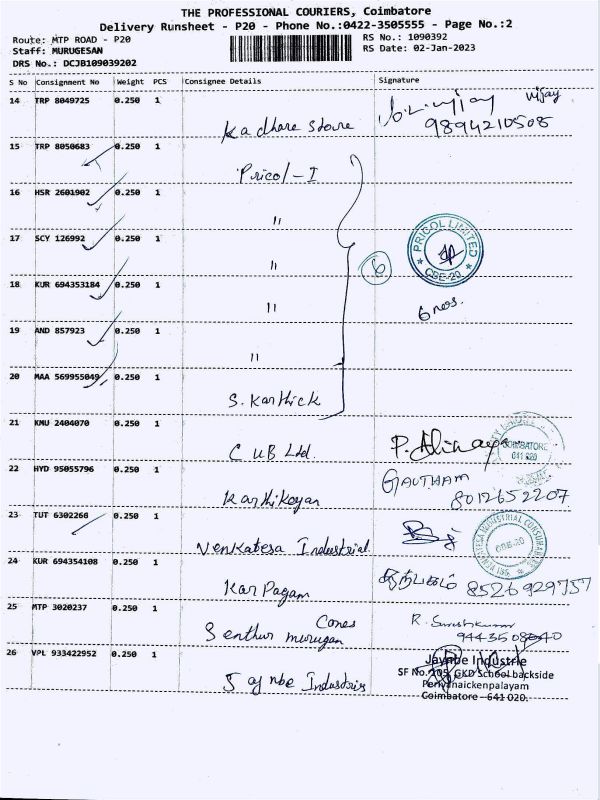 THE PROFESSIONAL COURIERS, Coimbatore
Delivery Runsheet - P20 - Phone No.:0422-3505555 - Page No.:2
Route: MTP ROAD - P20
RS No.: 1090392
Staff: MURUGESAN
RS Date: 02-Jan-2023
DRS No.: DCJB109039202
S No Consignment No Weight PCS Consignee Details Signature
14 TRP 8049725 0.250 1
Kadhare Store
vijay
9894210508
15 TRP 8050683 0.250 1
Pricol-I
16 HSR 2601902 0.250 1
"
17 SCY 126992 0.250 1
"
PRICOL LIMITED
CBE-20
6
18 KUR 694353184 0.250 1
"
6 nos.
19 AND 857923 0.250 1
"
20 MAA 569955049 0.250 1
S. Karthick
21 KMU 2404070 0.250 1
CUB Ltd.
COIMBATORE
641 020
22 HYD 95055796 0.250 1
Karthikeyan
GAUTHAM
8012652207
23 TUT 6302268 0.250 1
Venkatesa Industrial
VENKATESA INDUSTRIAL CONSUMABLES
CBE-20
24 KUR 694354108 0.250 1
Kar Pagam
8526929757
25 MTP 3020237 0.250 1
Cones
Senthur murugan
R. Sureshkumar
26 VPL 933422952 0.250 1
Jaynbe Industries
Jaynbe Industrie
SF No. 205, GKD School backside
Periyanaickenpalayam
Coimbatore - 641 020.